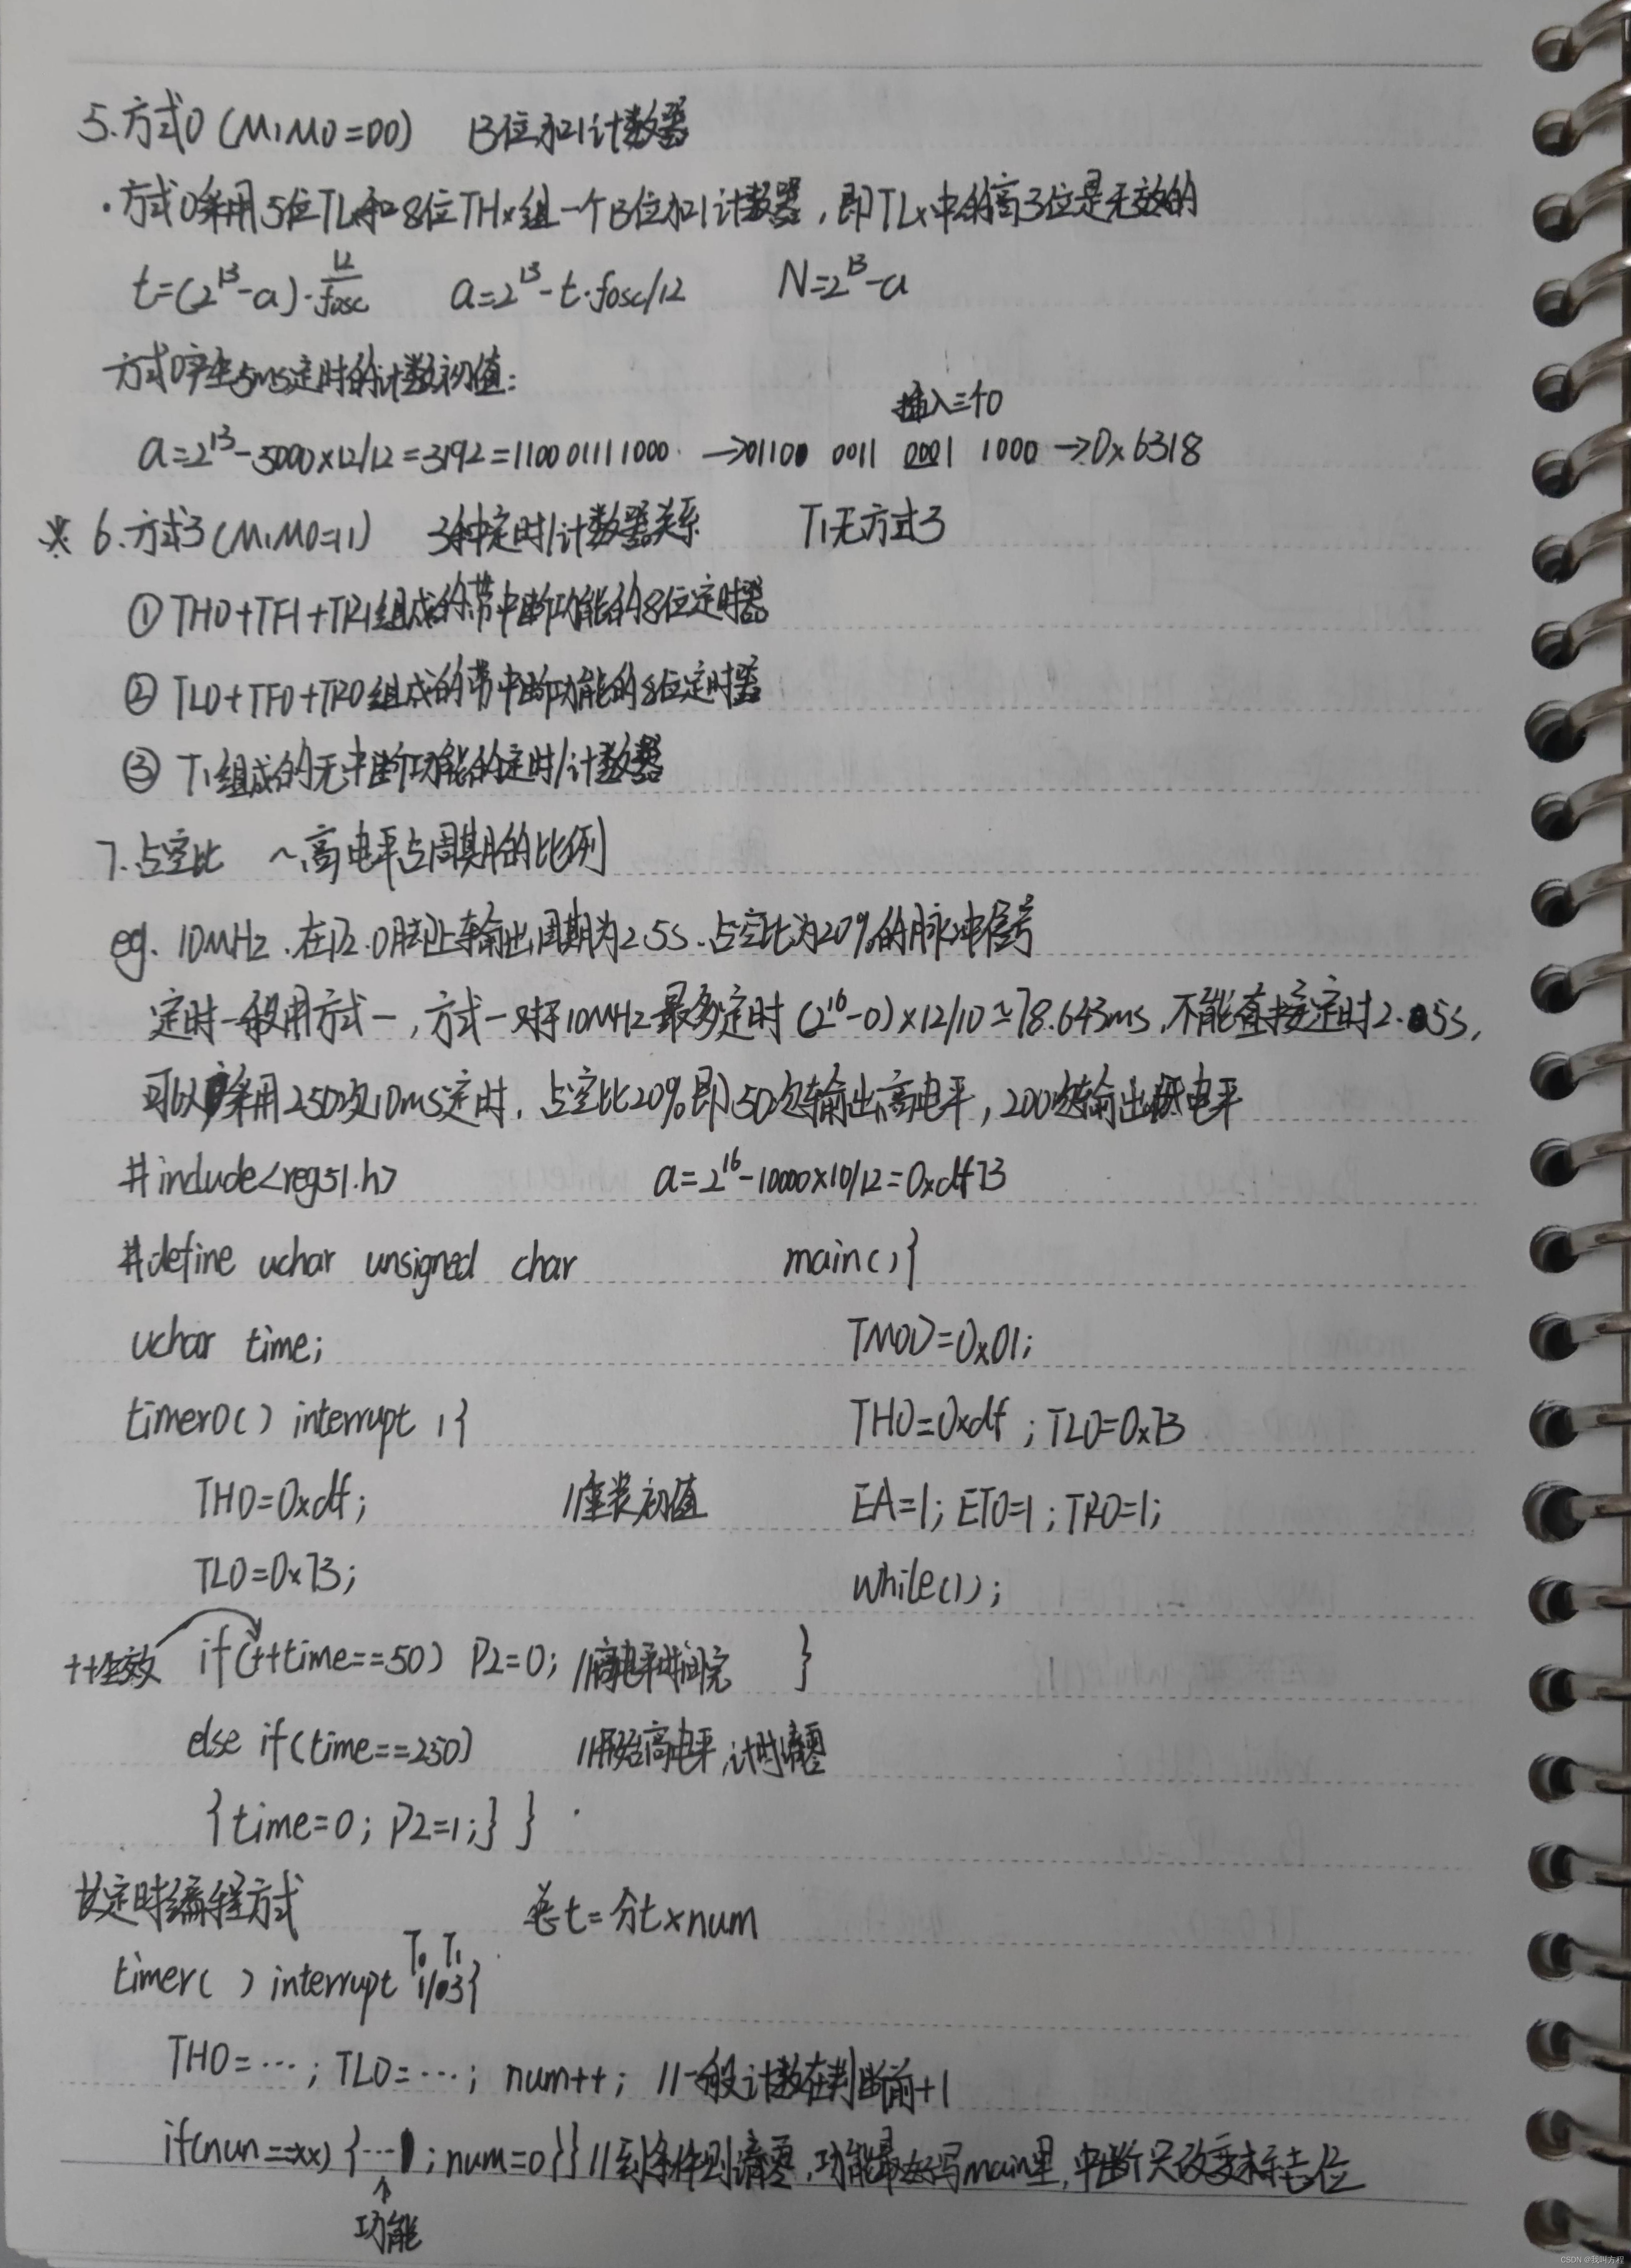 5.方式0 (M1M0=00) 13位加1计数器
·方式0采用5位TLx和8位THx组一个13位加1计数器,即TLx中的高3位是无效的
t=(2^13-a)·12/fosc a=2^13-t·fosc/12 N=2^13-a
方式0产生5ms定时的计数初值:
插入三个0
a=2^13-5000×12/12=3192=110001111000 →01100 0011 0001 1000→0x6318
※ 6.方式3(M1M0=11) 3种定时/计数器关系 T1无方式3
① TH0+TF1+TR1组成的带中断功能的8位定时器
② TL0+TF0+TR0组成的带中断功能的8位定时器
③ T1组成的无中断功能的定时/计数器
7.占空比 ~高电平占周期的比例
eg. 10MHz.在P2.0脚上输出周期为2.5s.占空比为20%的脉冲信号
定时一般用方式一,方式一对于10MHz最多定时(2^16-0)×12/10≈78.643ms,不能直接定时2.5s,
可以采用250次10ms定时.占空比20%即50次输出高电平,200次输出低电平
#include<reg51.h> a=2^16-10000×10/12=0xdf73
#define uchar unsigned char main(){
uchar time; TMOD=0x01;
timer0() interrupt 1{ TH0=0xdf;TL0=0x73
TH0=0xdf; //重装初值 EA=1;ET0=1;TR0=1;
TL0=0x73; while(1);
++生效 if(++time==50) P2=0; //高电平时间完 }
else if(time==250) //开始高电平,计时清零
{time=0; P2=1;} }
定时编程方式 总t=分t×num
T0 T1
timer( ) interrupt 1/03{
TH0=…;TL0=…; num++; //一般计数在判断前+1
if(nun==xx) {…;num=0}}//到条件则清零,功能最好写main里,中断只改变标志位
↑
功能
CSDN @我叫方程